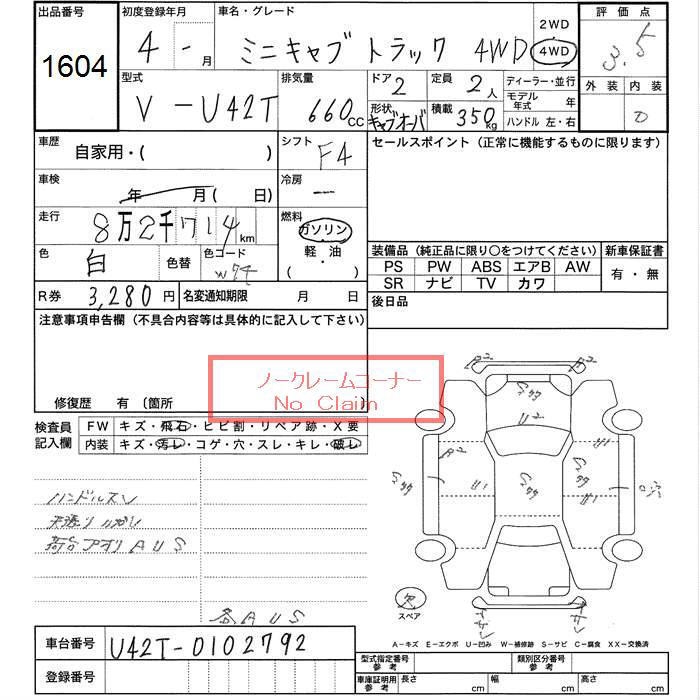 出品番号
1604
初度登録年月
4 - 月
車名・グレード
ミニキャブ トラック 4WD
2WD
4WD
評価点
3.5
型式
V-U42T
排気量
660 cc
ドア 2
定員 2 人
形状 キャブオーバ
積載 350 kg
ディーラー・並行
モデル年式 年
ハンドル 左・右
外装
内装
D
車歴
自家用・( )
シフト
F4
セールスポイント (正常に機能するものに限ります)
車検
年 月( 日)
冷房
―
走行
8万2千714km
燃料
ガソリン
軽・油
( )
色
白
色替
色コード
W74
装備品 (純正品に限り○をつけてください)
新車保証書
PS PW ABS エアB AW
SR ナビ TV カワ
有・無
R券 3,280 円
名変通知期限 月 日
後日品
注意事項申告欄 (不具合内容等は具体的に記入して下さい)
ノークレームコーナー
No Claim
修復歴 有 〔箇所 〕
検査員記入欄
FW キズ・飛石・ヒビ割・リペア跡・X要
内装 キズ・汚レ・コゲ・穴・スレ・キレ・破レ
ハンドルスレ
荷台アオリAUS
各AUS
A² A²
U²
A² U'
U' U'
欠
スペア
A-キズ E-エクボ U-凹み W-補修跡 S-サビ C-腐食 XX-交換済
車台番号
U42T-0102792
登録番号
型式指定番号 参考
類別区分番号 参考
車庫証明用 参考
長さ cm
幅 cm
高さ cm